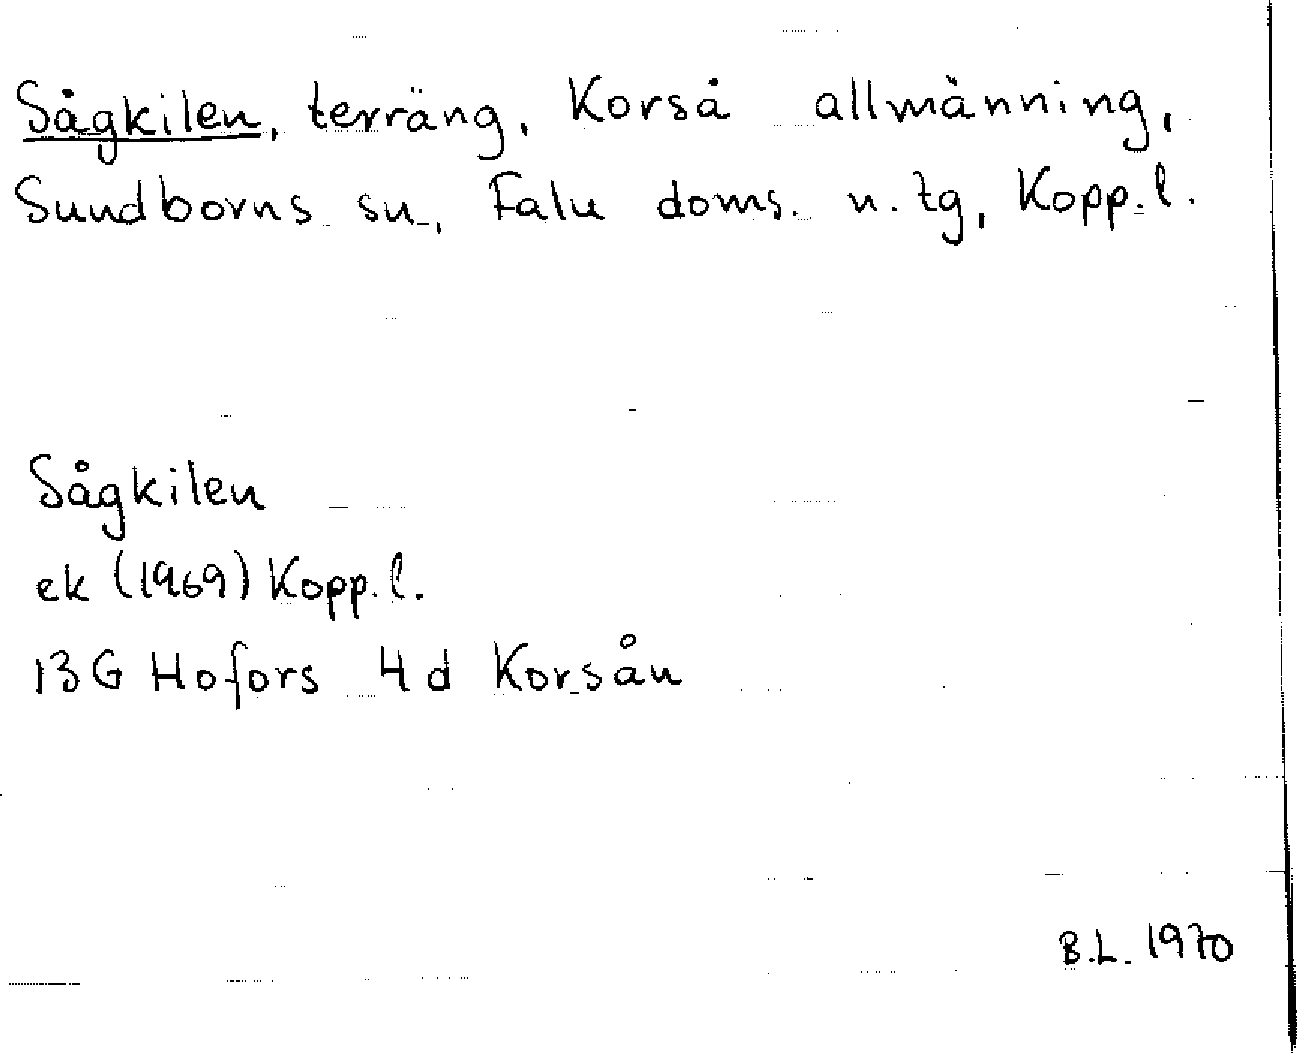 Sågkilen, terräng, Korså allmänning,
Sundborns sn., Falu doms. n. tg, Kopp. l.
Sågkilen
ek (1969) Kopp. l.
13G Hofors 4d Korsån
B.L. 1970